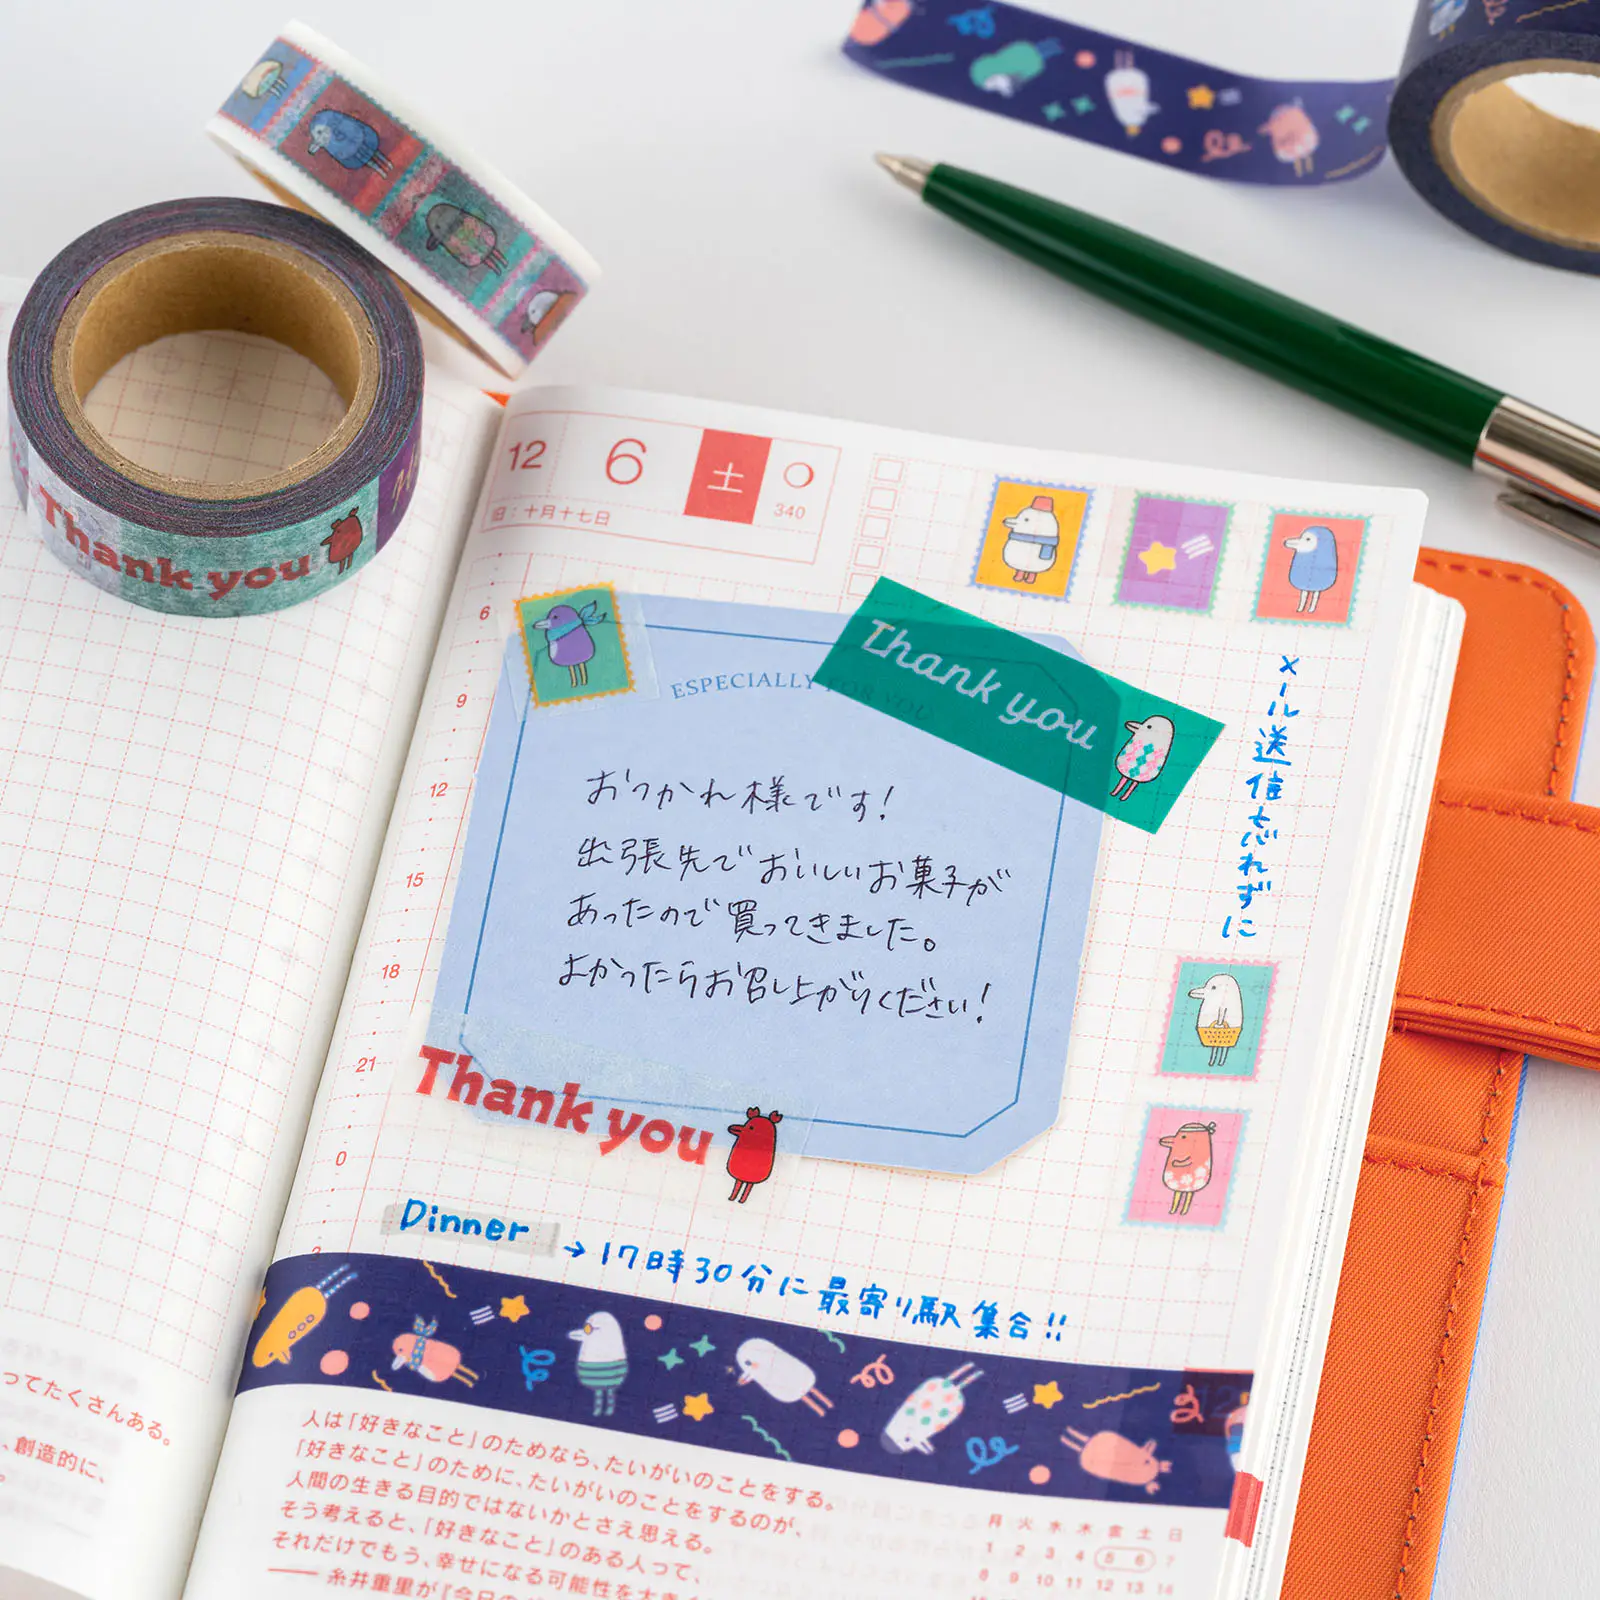 Thank you
12 6 土
340
旧：十月十七日
6
9
12
15
18
21
0
ESPECIALLY FOR YOU
Thank you
おつかれ様です！
出張先でおいしいお菓子が
あったので買ってきました。
よかったらお召し上がりください！
Thank you
メール送信忘れずに
Dinner
→17時30分に最寄り駅集合!!
ってたくさんある。
、創造的に、
人は「好きなこと」のためなら、たいがいのことをする。
「好きなこと」のために、たいがいのことをするのが、
人間の生きる目的ではないかとさえ思える。
そう考えると、「好きなこと」のある人って、
それだけでもう、幸せになる可能性を大き
—— 糸井重里が『今日の
月 火 水 木 金 土 日
1 2 3 4 5 6 7
8 9 10 11 12 13 14